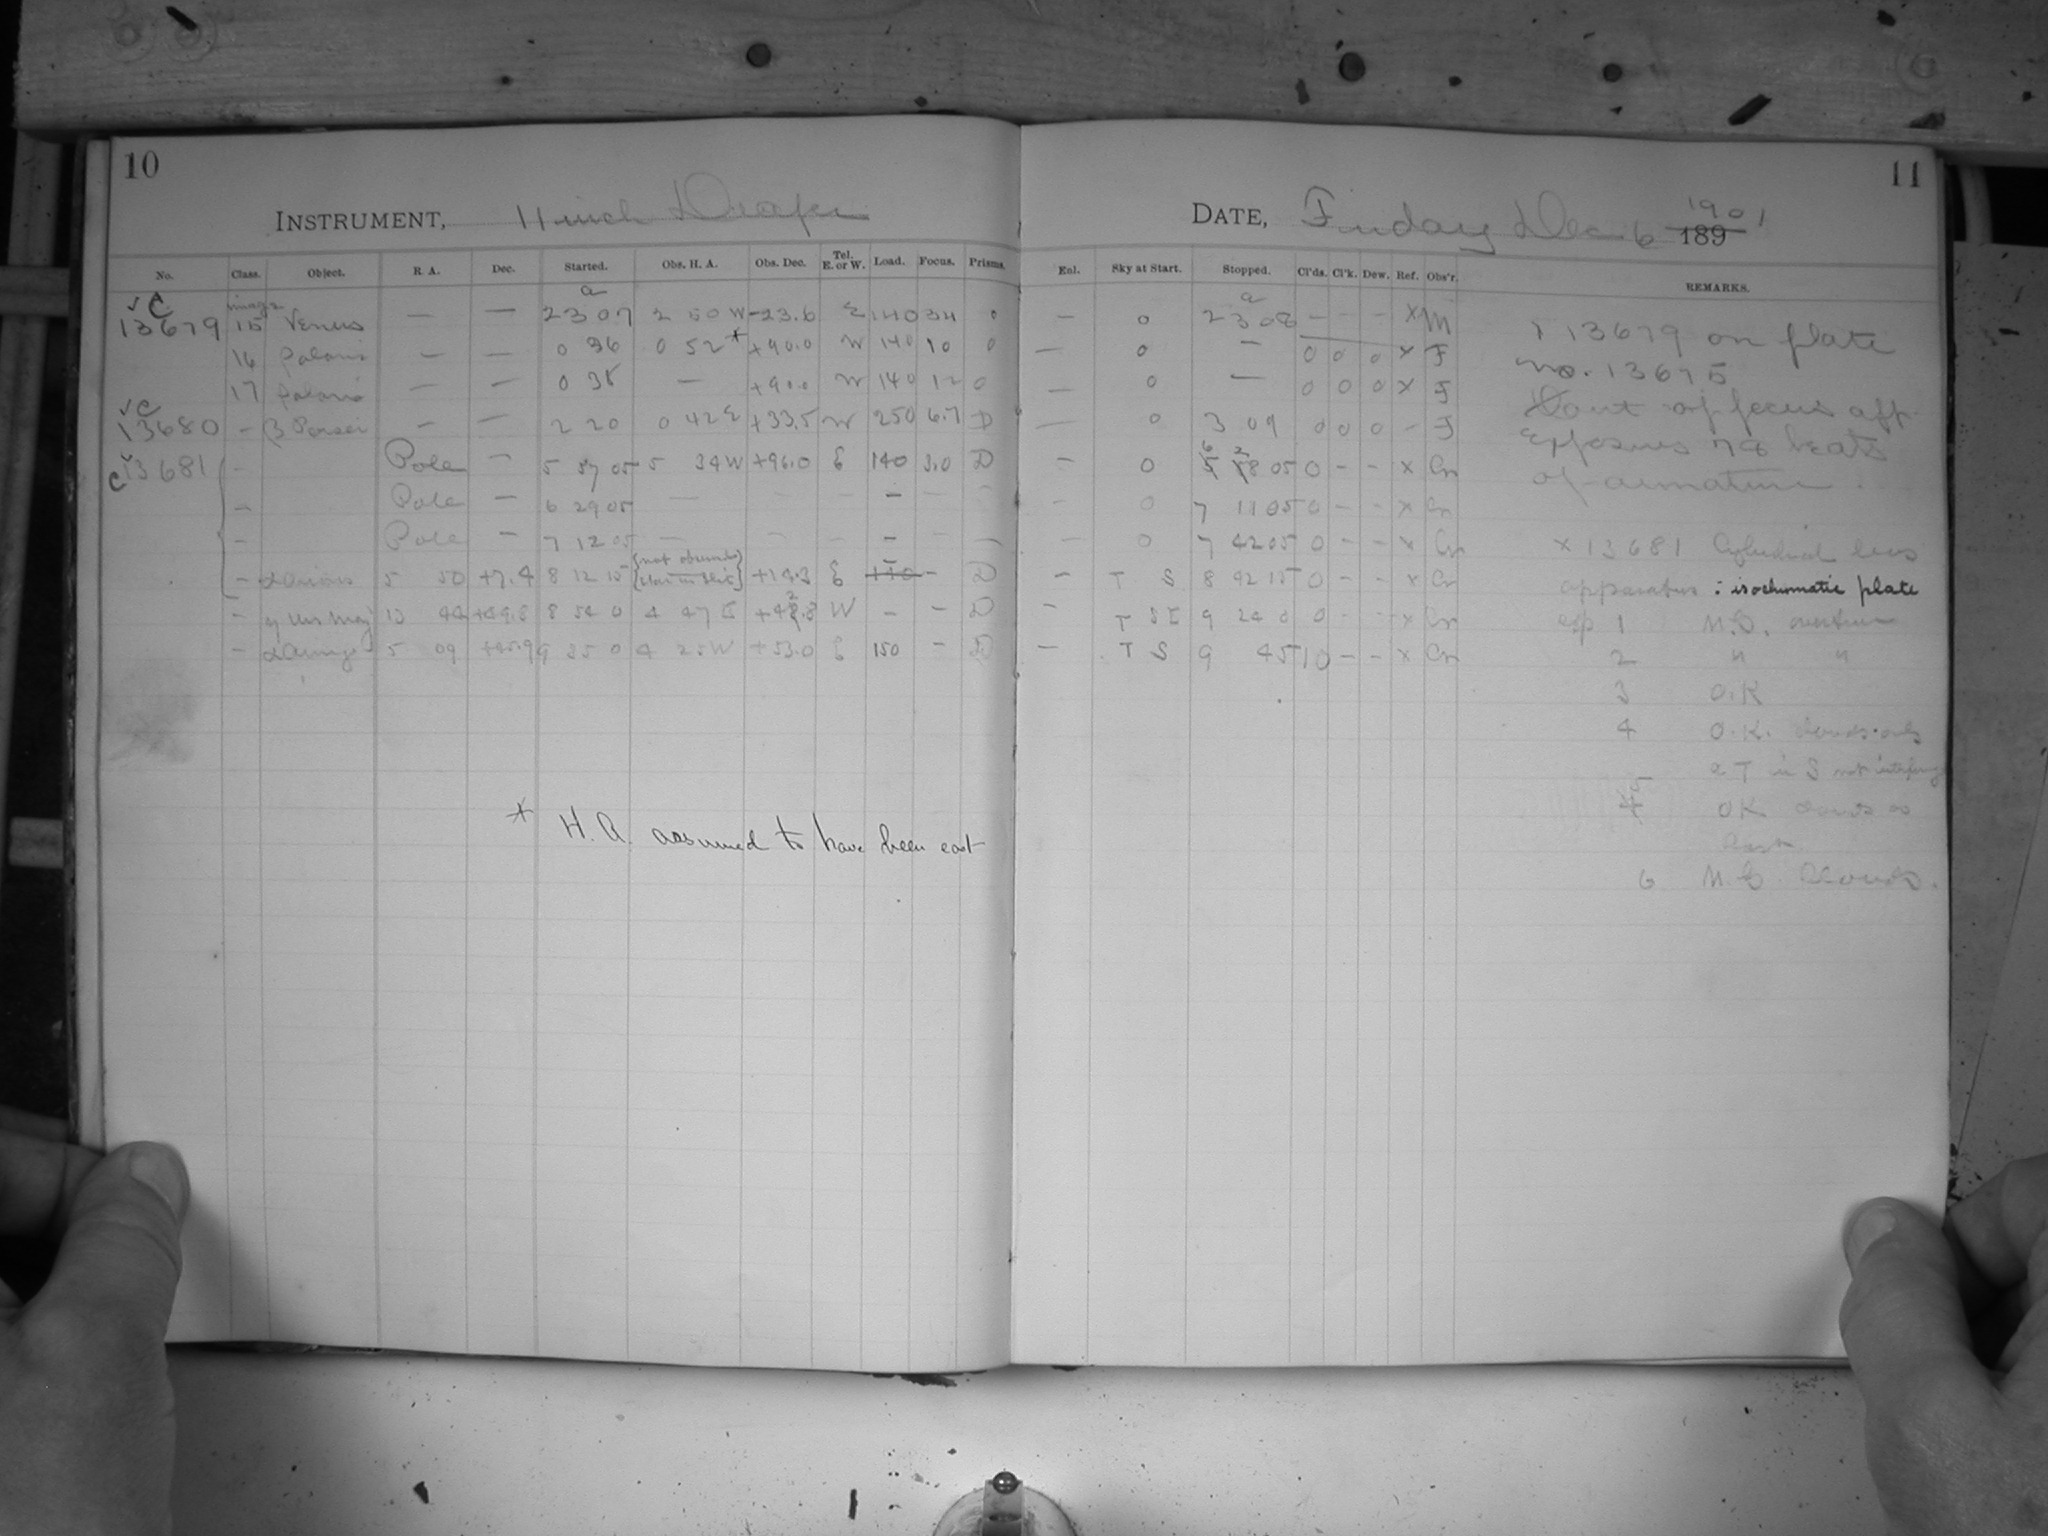 10
INSTRUMENT, 11 inch Draper
No. Class. Object. R. A. Dec. Started. Obs. H. A. Obs. Dec. Tel. E. or W. Load. Focus. Prisms.
a
image
13679 15 Venus — — 23 07 2 50 W -23.6 E 140 34 0
16 Polaris — — 0 36 0 52 * +90.0 W 140 10 0
17 Polaris — — 0 38 — +90.0 W 140 12 0
13680 - β Persei — — 2 20 0 42 E +33.5 W 250 6.7 D
C 13681 - Pole — 5 57 05 5 34 W +96.0 E 140 3.0 D
- Pole — 6 29 05 — — — — — —
- Pole — 7 12 05 — — — — — —
- α Orionis 5 50 +7.4 8 12 15 {not observed +14.3 E 140 - D
- η Urs Maj 13 44 +49.8 8 54 0 4 47 E W - - D
- α Aurigæ 5 09 +45.9 9 35 0 4 25 W +53.0 E 150 - D
* H. A. assumed to have been east
11
DATE, Friday Dec. 6 1901
189
Enl. Sky at Start. Stopped. Cl'ds. Cl'k. Dew. Ref. Obs'r. REMARKS.
a
— 0 23 08 - - - x M
— 0 — 0 0 0 x F
— 0 — 0 0 0 x F
— 0 3 09 0 0 0 - F
— 0 6 28 05 0 - - x Cn
— 0 7 11 05 0 - - x Cn
0 7 42 05 0 - - x Cn
— T S 8 42 15 0 - - x Cn
— T SE 9 24 0 0 - - x Cn
— T S 9 45 10 - - x Cn
13679 on plate
No. 13675
out of focus
Exposures 78 beats
of armature.
x 13681 Cylindrical lens
apparatus : isochromatic plate
exp 1 N.G.
2 " "
3 O.K
4 O.K. clouds only
a T in S not interfering
5 OK clouds as
last
6 N.G. Clouds.